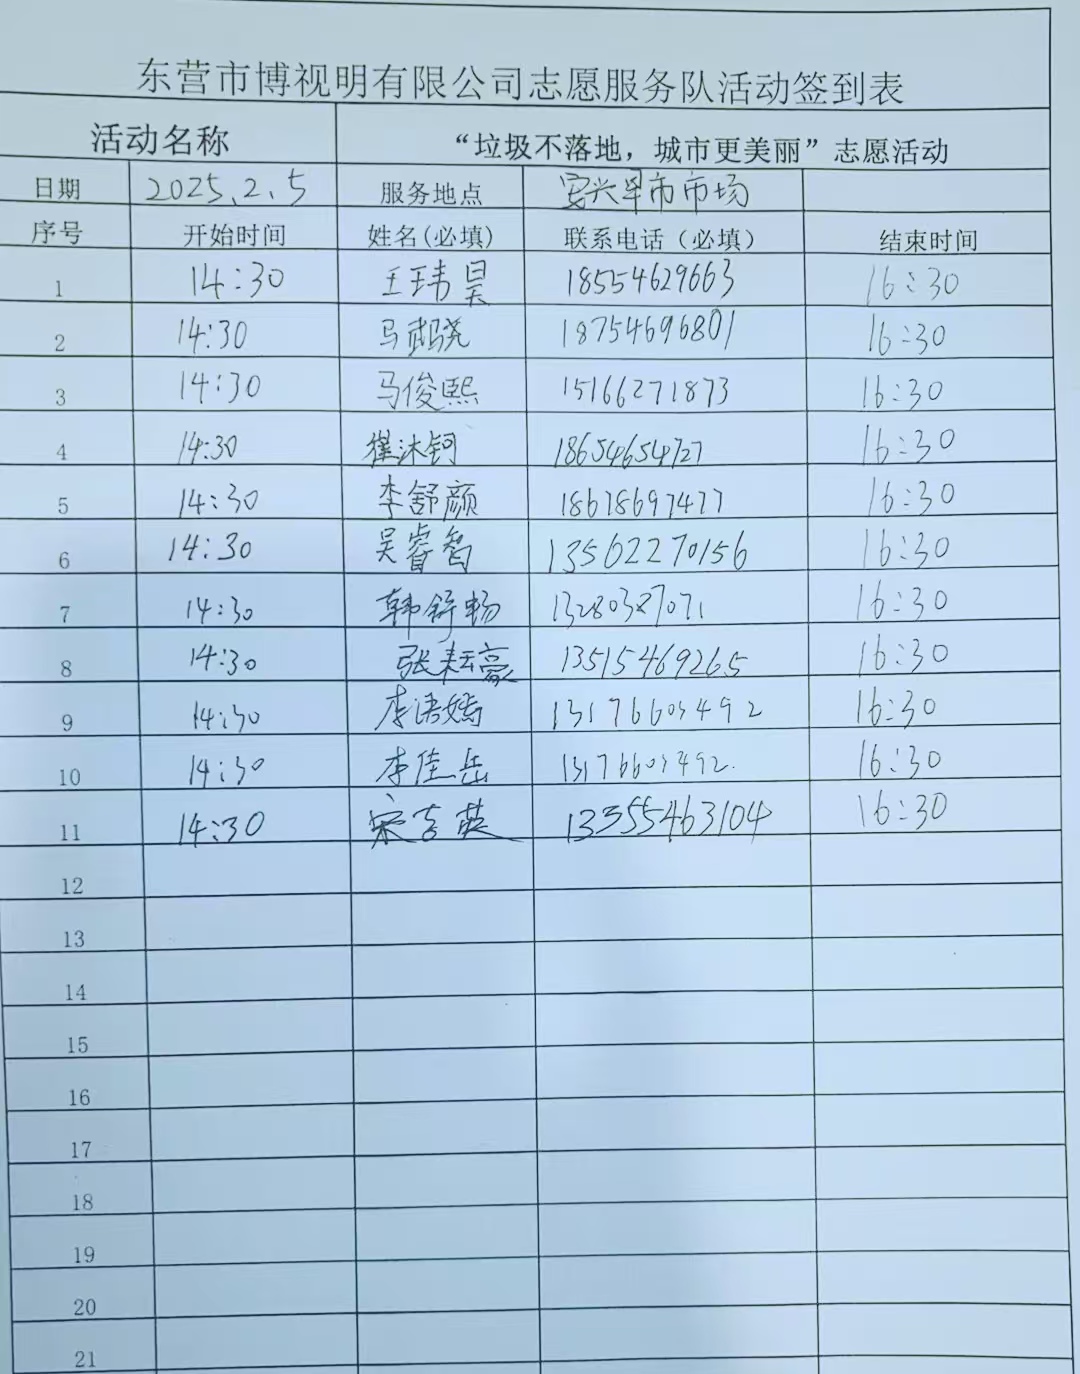 东营市博视明有限公司志愿服务队活动签到表
活动名称 “垃圾不落地，城市更美丽”志愿活动
日期 2025.2.5 服务地点 安兴早市市场
序号 开始时间 姓名(必填) 联系电话（必填） 结束时间
1 14:30 王玮昊 18554629663 16:30
2 14:30 马 18754696801 16:30
3 14:30 马俊熙 15166271873 16:30
4 14:30 崔沐钶 18654654727 16:30
5 14:30 李舒颜 18678697477 16:30
6 14:30 吴睿智 13562270156 16:30
7 14:30 韩舒畅 13280387071 16:30
8 14:30 张耘豪 13515469265 16:30
9 14:30 李语嫣 13176603492 16:30
10 14:30 李佳岳 13176603492. 16:30
11 14:30 宋吉英 13355463104 16:30
12
13
14
15
16
17
18
19
20
21